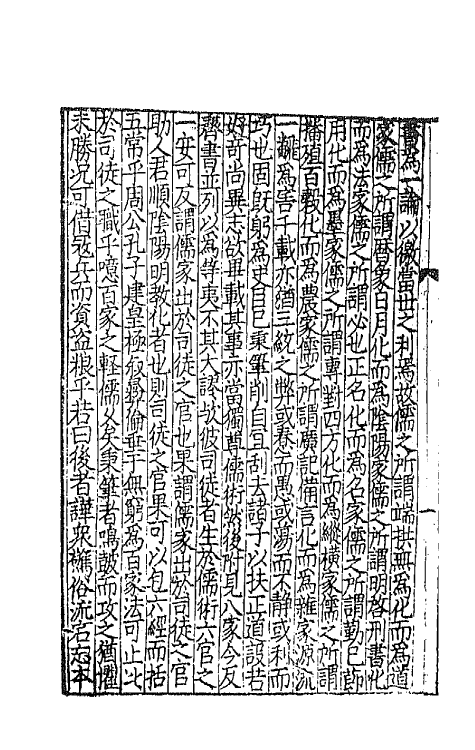 書為一論以儆當世之利焉故儒之所謂端拱無為化而為道
家儒之所謂曆象日月化而為陰陽家儒之所謂明啓刑書化
而為法家儒之所謂必也正名化而為名家儒之所謂勤已節
用化而為墨家儒之所謂專對四方化而為縱橫家儒之所謂
播殖百穀化而為農家儒之所謂廣記備言化而為雜家源流
一離為害千載亦猶三紋之弊或春而愚或蕩而不静或利而
巧也固既躬為史自已秉筆削自宜刮去諸子以扶正道設若
好奇尚異志欲畢載其事亦當獨尊儒術然後附見八家今反
齊書並列以為等夷不其大謬哉彼司徒者生於儒術六官之
一安可反謂儒家出於司徒之官也果謂儒家出於司徒之官
助人君順陰陽明教化者也則司徒之官果可以包六經而括
五常乎周公孔子建皇極叙彛倫垂于無窮為百家法可止比
於司徒之職乎噫百家之輕儒久矣秉筆者鳴皷而攻之猶懼
未勝况可借冦兵而資盗粮乎若曰後者譁衆譙俗流若志本